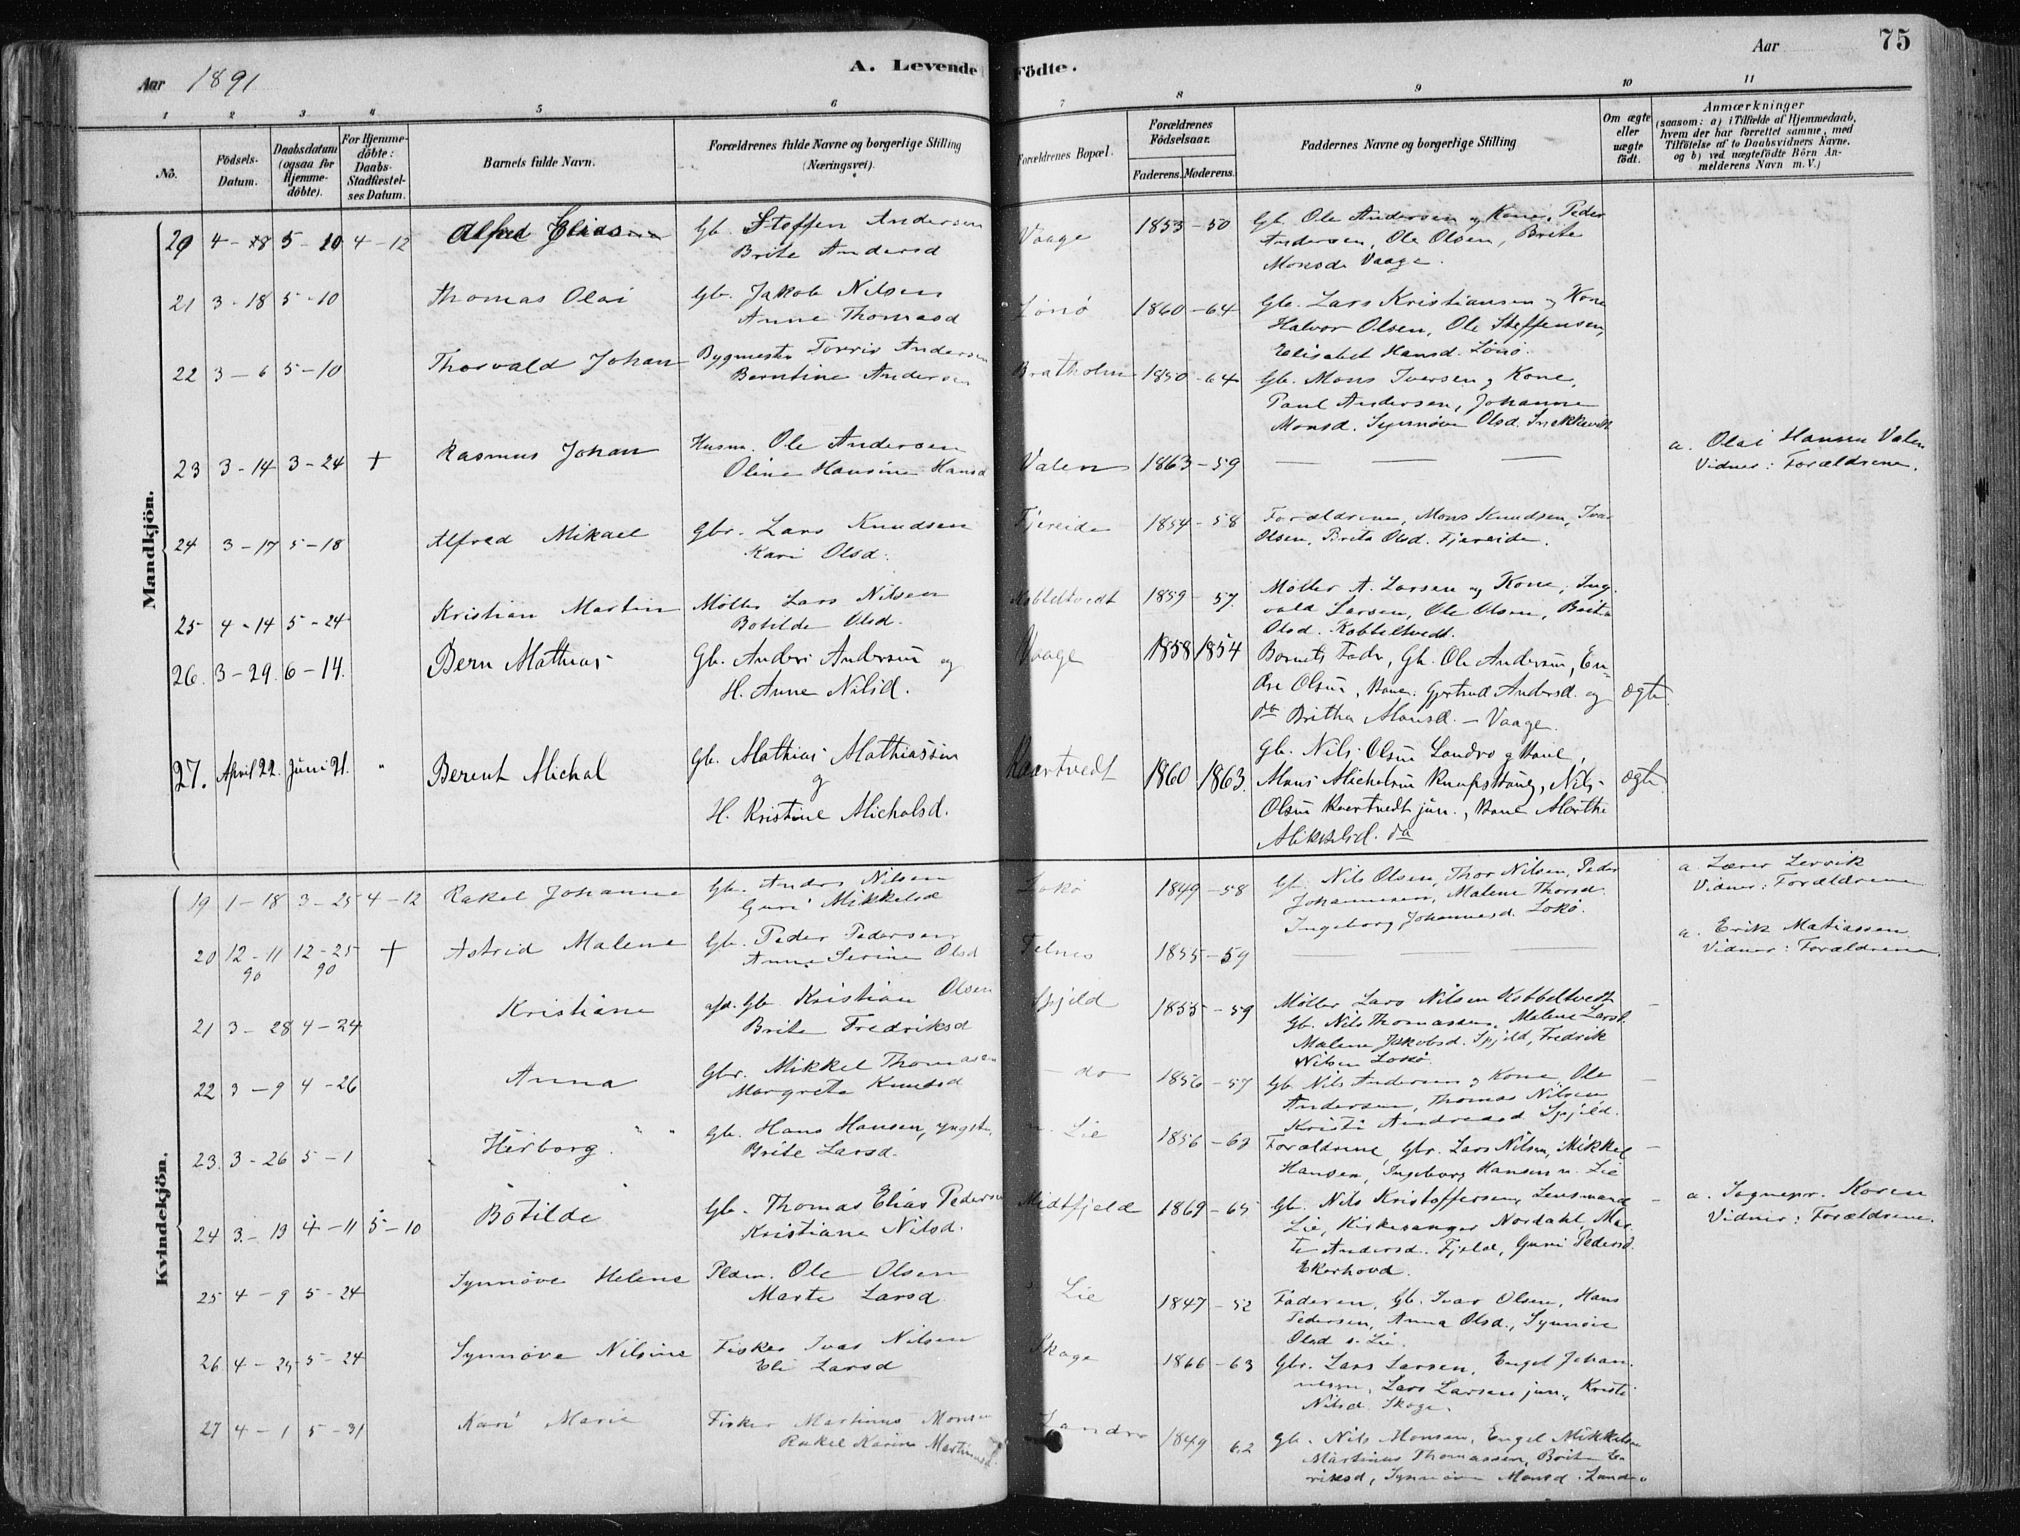 Aar 1891 A. Levende Födte. Aar 75
1 2 3 4 5 6 7 8 9 10 11
No. Födsels-Datum. Daabsdatum (ogsaa for Hjemme-döbte). For Hjemme-döbte: Daabs-Stadfæstel-ses Datum. Barnets fulde Navn. Forældrenes fulde Navne og borgerlige Stilling (Næringsvei). Forældrenes Bopæl. Forældrenes Födselsaar. Faderens. Moderens. Faddernes Navne og borgerlige Stilling Om ægte eller uægte födt. Anmærkninger (saasom: a) i Tilfælde af Hjemmedaab, hvem der har forrettet samme, med Tilföielse af to Daabsvidners Navne, og b) ved uægtefödte Börn An-melderens Navn m. V.)
Mandkjön.
20 4-18 5-10 4-12 Alfred Elias Gb. Steffen Andersen Vaage 1853-50 Gb. Ole Andersen og Kone, Peder
Brite Andersd Andersen, Ole Olsen, Brite
Monsd. Vaage.
21 3-18 5-10 Thomas Olai Gb. Jakob Nilsen Lönö 1860-64 Gb. Lars Kristiansen og Kone
Anne Thomasd Halvor Olsen, Ole Steffensen,
Elisabet Hansd. Lönö.
22 3-6 5-10 Thorvald Johan Bygmester Torris Andersen Bratholm 1850-64 Gb. Mons Iversen og Kone,
Berntine Andersen Paul Andersen, Johanne
Monsd. Synnöve Olsd. Snekkevik
23 3-14 3-24 + Rasmus Johan Husm. Ole Andersen Valen 1863-59 — — — a. Olai Hansen Valen
Oline Hansine Hansd Vidner: Forældrene.
24 3-17 5-18 Alfred Mikael Gbr. Lars Knudsen Fjereide 1854-58 Forældrene, Mons Knudsen, Ivar
Kari Olsd. Olsen, Brita Olsd. Fjereide.
25 4-14 5-24 Kristian Martin Möller Lars Nilsen Kobbeltvedt 1859-57. Möller A. Larsen og Kone, Ing-
Botilde Olsd. vald Larsen, Ole Olsen, Brita
Olsd. Kobbeltvedt.
26. 3-29. 6-14. Bern Mathias Gb. Anders Andersen og Vaage 1858 1854 Barnets Fader, Gb. Ole Andersen, En-
H. Anne Nilsd. dre Olsen, Kone Gjertrud Andersd. og ægte
do Britha Monsd. — Vaage.
27. April 22. Juni 21. " Berent Michal Gb. Mathias Mathiassen Kaartvedt 1860 1863. Gb. Nils Olsen Landro og Kone,
og Mons Michelsen Knapskoug, Nils ægte
H. Kristine Micholsd. Olsen Kaartvedt jun., Kone Marthe
Mikkelsd. do
Kvindekjön.
19 1-18 3-25 4-12 Rakel Johanne Gb. Anders Nilsen Lokö 1849-58 Gb. Nils Olsen, Thor Nilsen, Peder a. Lærer Lervik
Guri Mikkelsd Johannesen, Malene Thorsd. Vidner: Forældrene
Ingeborg Johannesd. Lokö.
20 12-11 90 12-25 90 + Astrid Malene Gb. Peder Pedersen Telnes 1855-59 — — a. Erik Matiassen
Anne Serine Olsd Vidner: Forældrene.
21 3-28 4-24 Kristiane afd. Gb Kristian Olsen Spjeld 1855-59 Möller Lars Nilsen Kobbeltvedt —
Brite Fredriksd Gb. Nils Thomassen, Malene Larsd.
Malene Jakobsd. Spjeld, Fredrik
Nilsen Lokö.
22 3-9 4-26 Anna Gbr. Mikkel Thomasen — do 1856-57 Gb. Nils Andersen og Kone, Ole —
Margrete Knudsd Andersen, Thomas Nilsen
Kristi Andreasd Spjeld.
23. 3-26 5-1 Herborg. Gb. Hans Hansen, yngst. n. Lie 1856-62 Forældrene, Gbr. Lars Nilsen, Mikkel —
Brite Larsd. Hansen, Ingeborg Hansen n. Lie
24 3-13 4-11 5-10 Botilde Gb. Thomas Elias Pedersen Midtfjeld 1869-65 Gb. Nils Kristoffersen, Lensmand — a. Sognepr. Koren
Kristiane Nilsd. Lie, Kirkesanger Nordahl, Mar- Vidner: Forældrene.
te Andersd. Fjeld, Guri Pedersd.
Ekerhovd.
25 4-9 5-24 Synnöve Helene Pldm. Ole Olsen s. Lie 1847-52 Faderen, Gb. Ivar Olsen, Hans
Marte Larsd. Pedersen, Anna Olsd., Synnöve
Olsd s. Lie.
26 4-25 5-24 Synnöve Nilsine Fisker Ivar Nilsen Skoge 1866-63 Gbr. Lars Larsen, Engel Johan-
Eli Larsd nesen, Lars Larsen jun., Kristi
Nilsd. Skoge.
27 4-1 5-31 Kari Marie Fisker Martinus Monsen Landro 1849-62 Gb. Nils Monsen, Engel Mikkelsen
Rakel Karine Martinusd. Martinus Thomassen, Brite En-
riksd, Synnöve Monsd. Landro